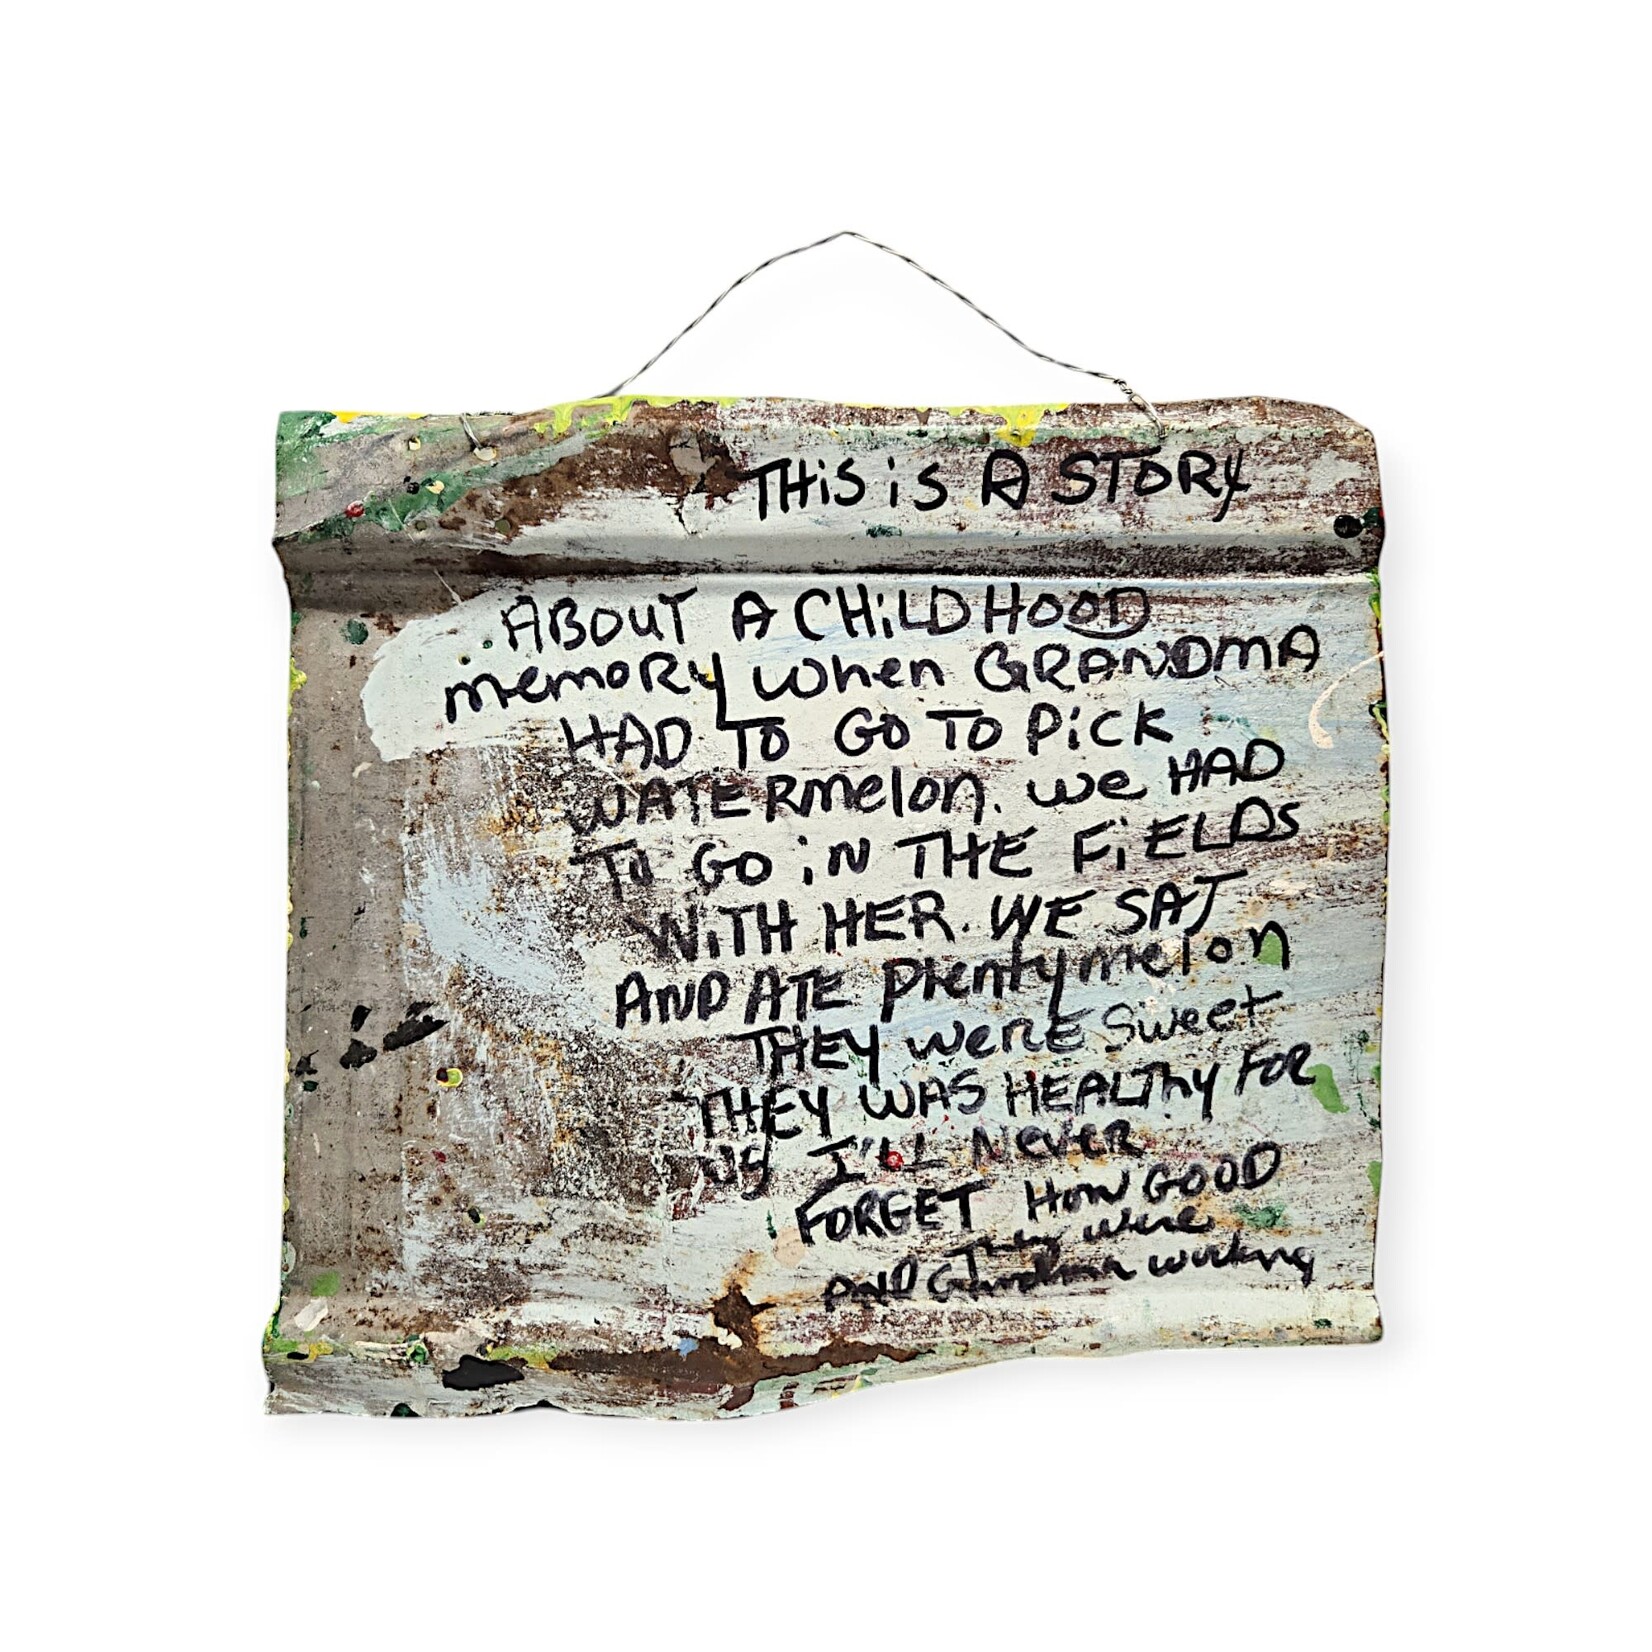 THiS iS A STORY
ABOUT A CHiLDHOOD
memoRy when GRANDMA
HAD TO GO TO PiCK
WATERmelon. we HAD
TO GO iN THE FiELDS
WiTH HER. WE SAT
AND ATE plenty melon
THEY weRE Sweet
THEY WAS HEALTHY FOR
US I'LL NEVER
FORGET HOW GOOD
They were
AND Grandma working